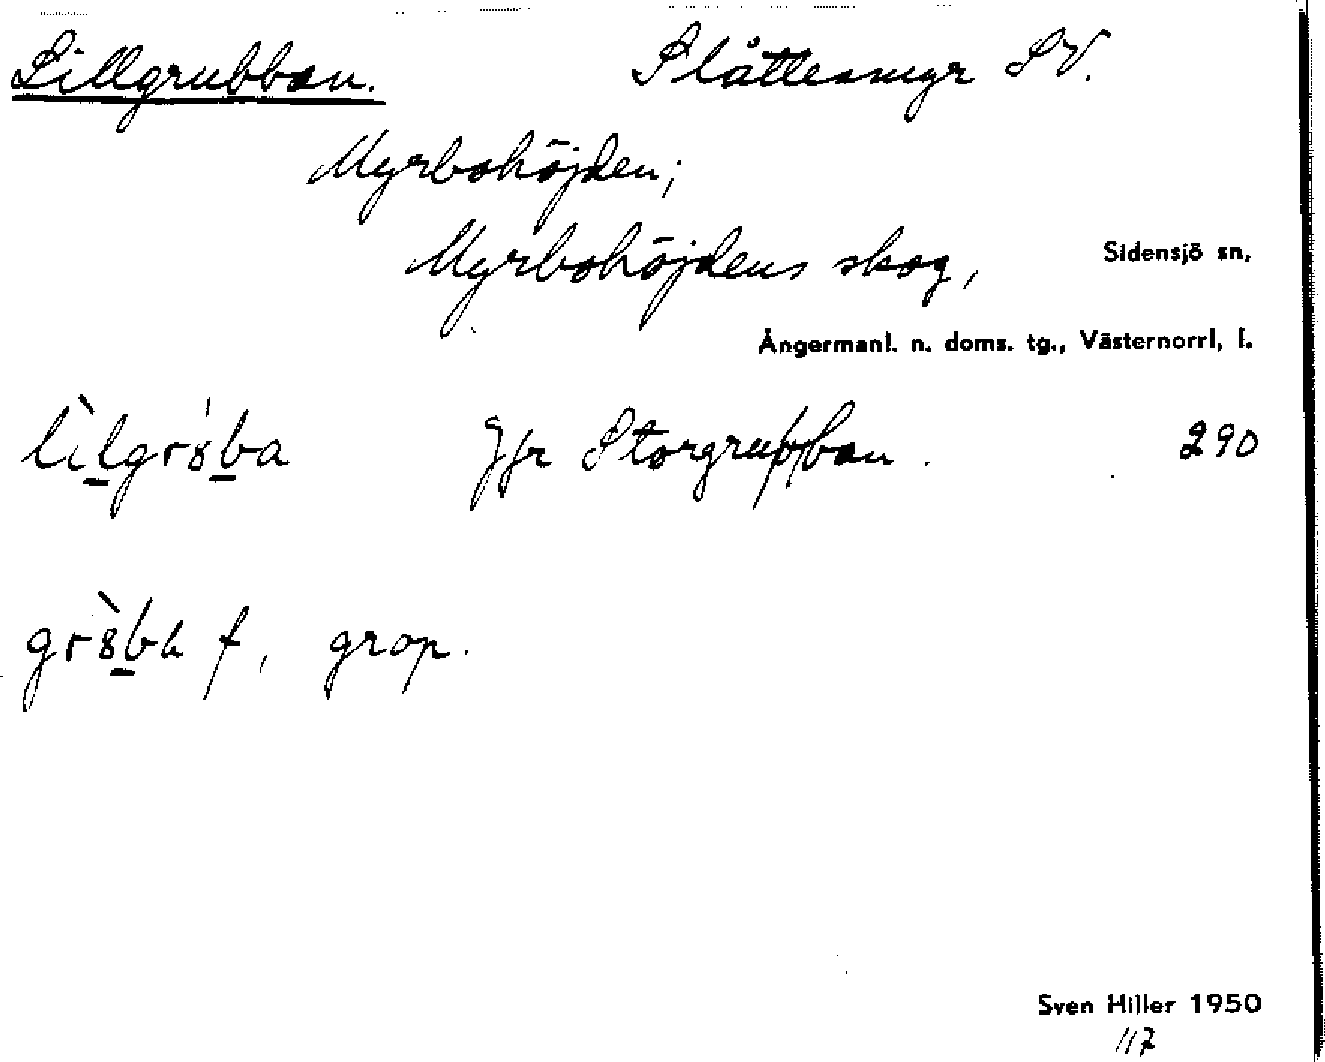 Lillgrubban. Slåttesmyr SV.
Myrbohöjden;
Myrbohöjdens skog,
Sidensjö sn.
Ångermanl. n. doms. tg., Västernorrl. l.
Jfr Storgrubban. 290
f, grop.
Sven Hiller 1950
117